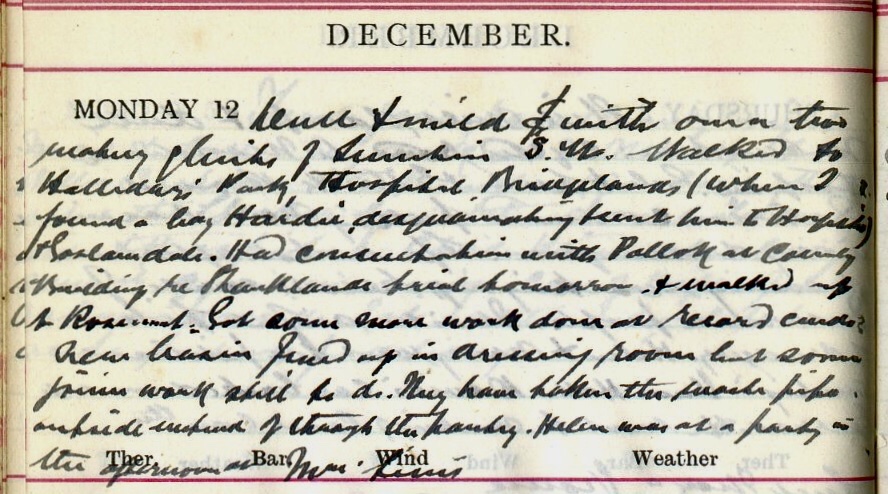 DECEMBER.
MONDAY 12 Dull & mild & with one or two
making blinks of Sunshine S.W. Walked to
Halliday's Park, Hospital Bridgelands (where I
found a boy Hardie, desquamating & sent him to Hospital)
& Goslawdale. Had consultation with Pollok at County
Building re Sharklands trial tomorrow. & walked up
to Rosemount. Got some more work done at record cards
New basin fixed up in dressing room but some
joiner work still to do. They have taken the waste pipe
outside instead of through the pantry. Helen was at a party in
the afternoon at Mrs.
Ther. Bar. Wind Weather